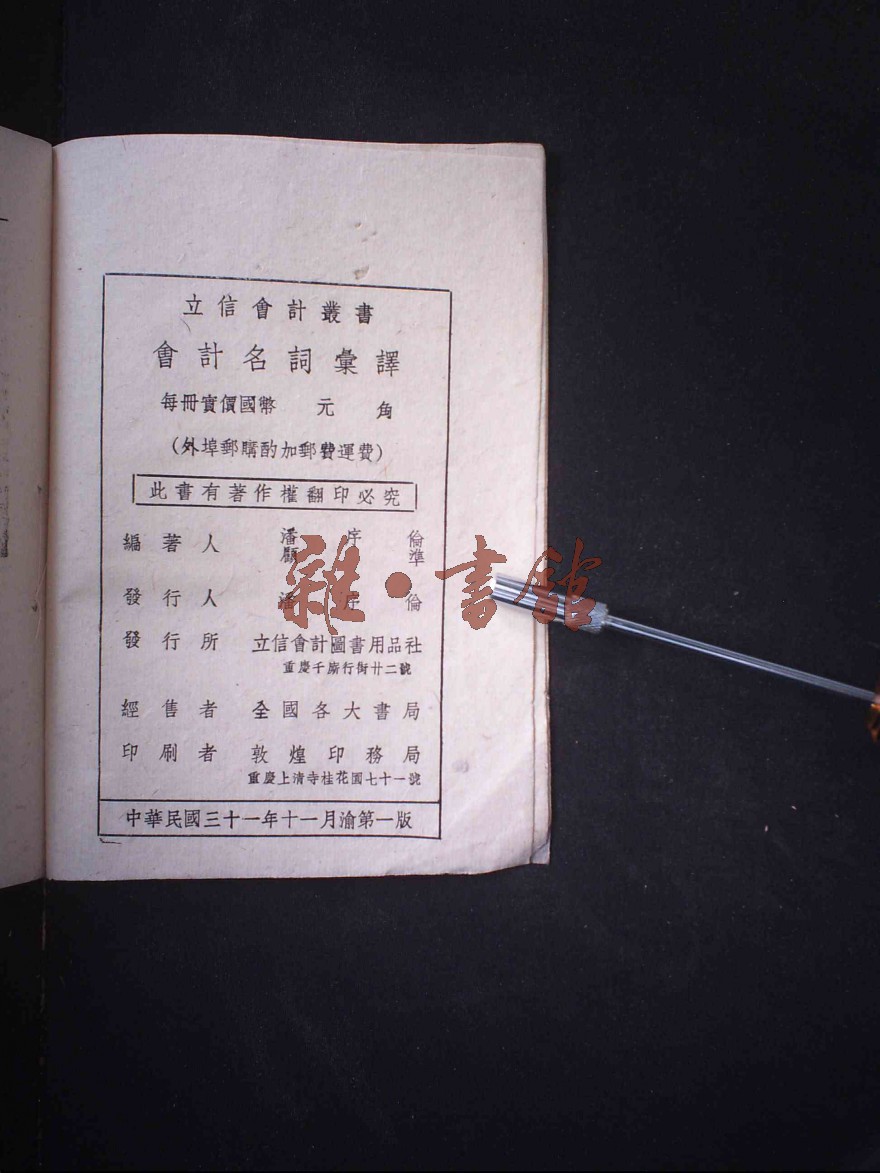 立信會計叢書
會計名詞彙譯
每冊實價國幣　元　角
(外埠郵購酌加郵費運費)
此書有著作權翻印必究
編著人　潘序倫
顧準
發行人　潘序倫
發行所　立信會計圖書用品社
重慶千廝行街廿二號
經售者　全國各大書局
印刷者　敦煌印務局
重慶上清寺桂花園七十一號
中華民國三十一年十一月渝第一版
雜·書館